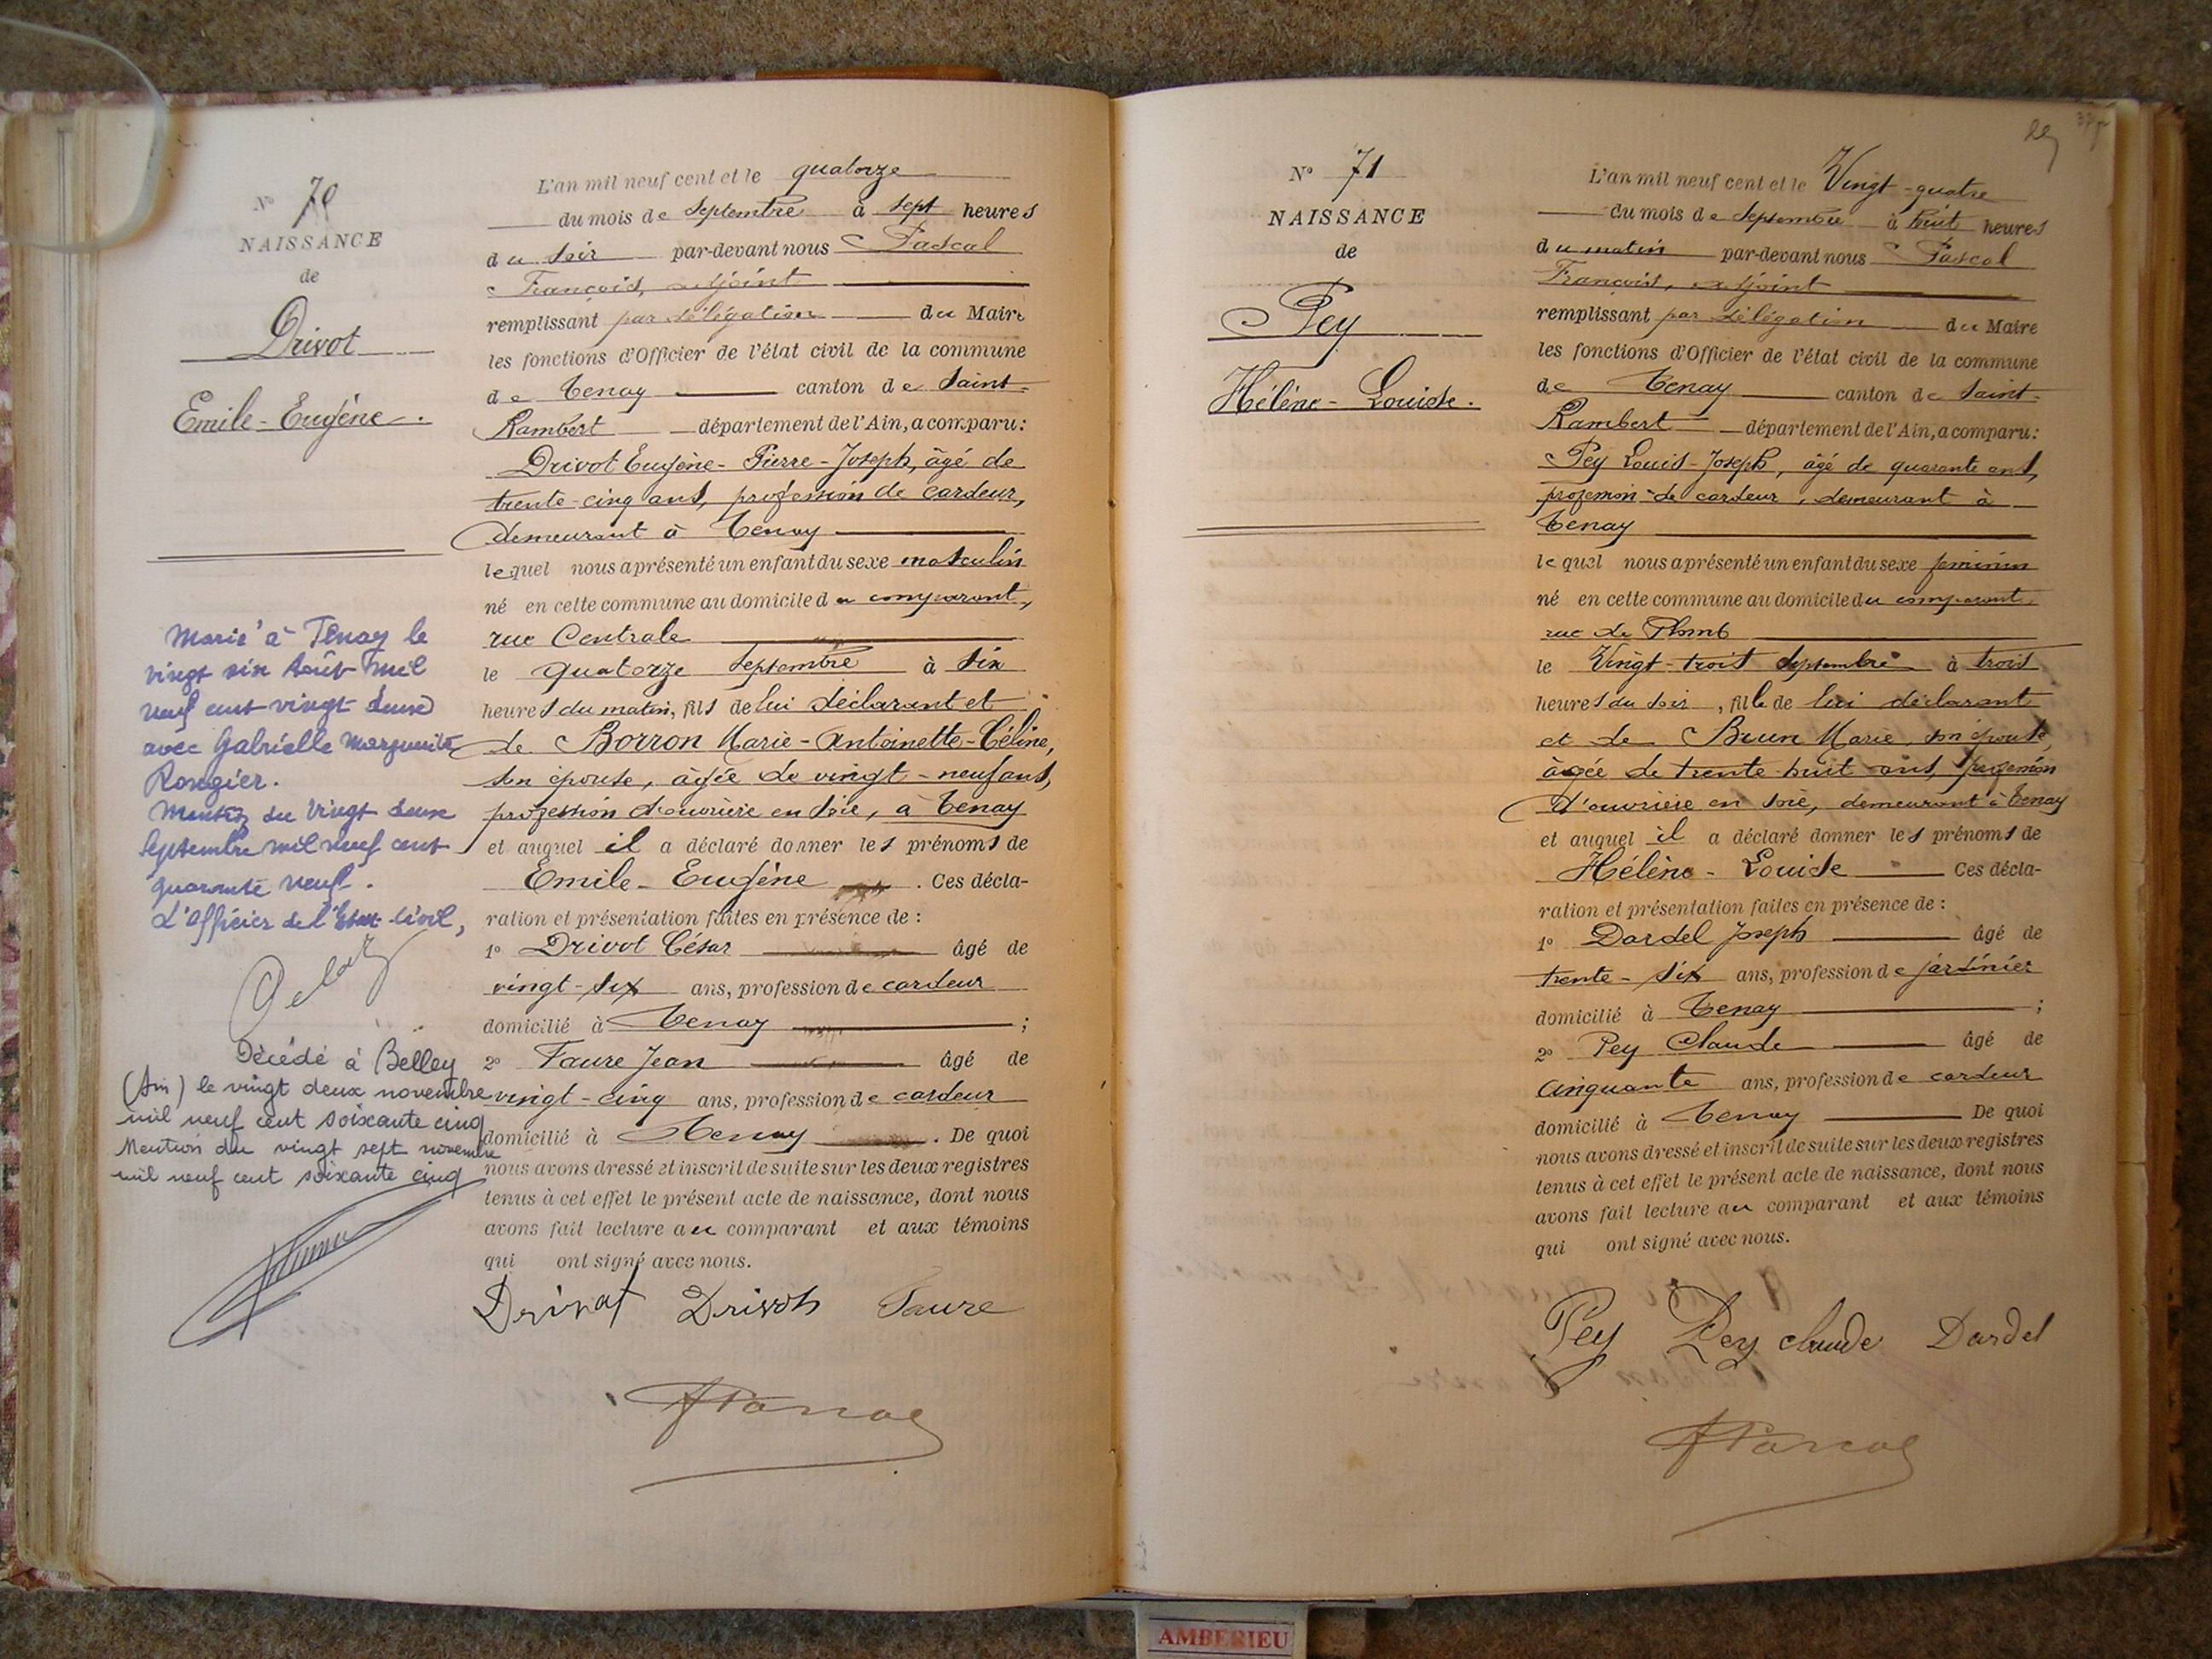 N° 70
NAISSANCE
de
Drivot
Emile-Eugène.
Marié à Tenay le
vingt six Août mil
neuf cent vingt deux
avec Gabrielle Marguerite
Rongier.
Mention du vingt deux
Septembre mil neuf cent
quarante neuf.
L'Officier de l'Etat-Civil,
Décédé à Belley
(Ain) le vingt deux novembre
mil neuf cent soixante cinq
Mention du vingt sept novembre
mil neuf cent soixante cinq
L'an mil neuf cent et le quatorze
du mois de Septembre à sept heures
du soir par-devant nous Pascal
François, adjoint
remplissant par délégation du Maire
les fonctions d'Officier de l'état civil de la commune
de Tenay canton de Saint-
Rambert département de l'Ain, a comparu:
Drivot Eugène-Pierre-Joseph, âgé de
trente-cinq ans, profession de cardeur,
demeurant à Tenay
lequel nous a présenté un enfant du sexe masculin
né en cette commune au domicile du comparant,
rue Centrale
le quatorze Septembre à six
heures du matin, fils de lui déclarant et
de Borron Marie-Antoinette-Céline,
son épouse, âgée de vingt-neuf ans,
profession d'ouvrière en soie, à Tenay
et auquel il a déclaré donner les prénoms de
Emile-Eugène. Ces décla-
ration et présentation faites en présence de:
1° Drivot César âgé de
vingt-six ans, profession de cardeur
domicilié à Tenay;
2° Faure Jean âgé de
vingt-cinq ans, profession de cardeur
domicilié à Tenay. De quoi
nous avons dressé et inscrit de suite sur les deux registres
tenus à cet effet le présent acte de naissance, dont nous
avons fait lecture au comparant et aux témoins
qui ont signé avec nous.
Drivot Drivot Faure
F Pascal
N° 71
NAISSANCE
de
Pey
Hélène-Louise.
L'an mil neuf cent et le Vingt-quatre
du mois de Septembre à huit heures
du matin par-devant nous Pascal
François, adjoint
remplissant par délégation du Maire
les fonctions d'Officier de l'état civil de la commune
de Tenay canton de Saint-
Rambert département de l'Ain, a comparu:
Pey Louis-Joseph, âgé de quarante ans,
profession de cardeur, demeurant à
Tenay
lequel nous a présenté un enfant du sexe féminin
né en cette commune au domicile du comparant,
rue de Plomb
le Vingt-trois Septembre à trois
heures du soir, fille de lui déclarant
et de Brun Marie, son épouse,
âgée de trente-huit ans, profession
d'ouvrière en soie, demeurant à Tenay
et auquel il a déclaré donner les prénoms de
Hélène-Louise Ces décla-
ration et présentation faites en présence de:
1° Dardel Joseph âgé de
trente-six ans, profession de jardinier
domicilié à Tenay;
2° Pey Claude âgé de
cinquante ans, profession de cardeur
domicilié à Tenay De quoi
nous avons dressé et inscrit de suite sur les deux registres
tenus à cet effet le présent acte de naissance, dont nous
avons fait lecture au comparant et aux témoins
qui ont signé avec nous.
Pey Pey Claude Dardel
F Pascal
AMBERIEU